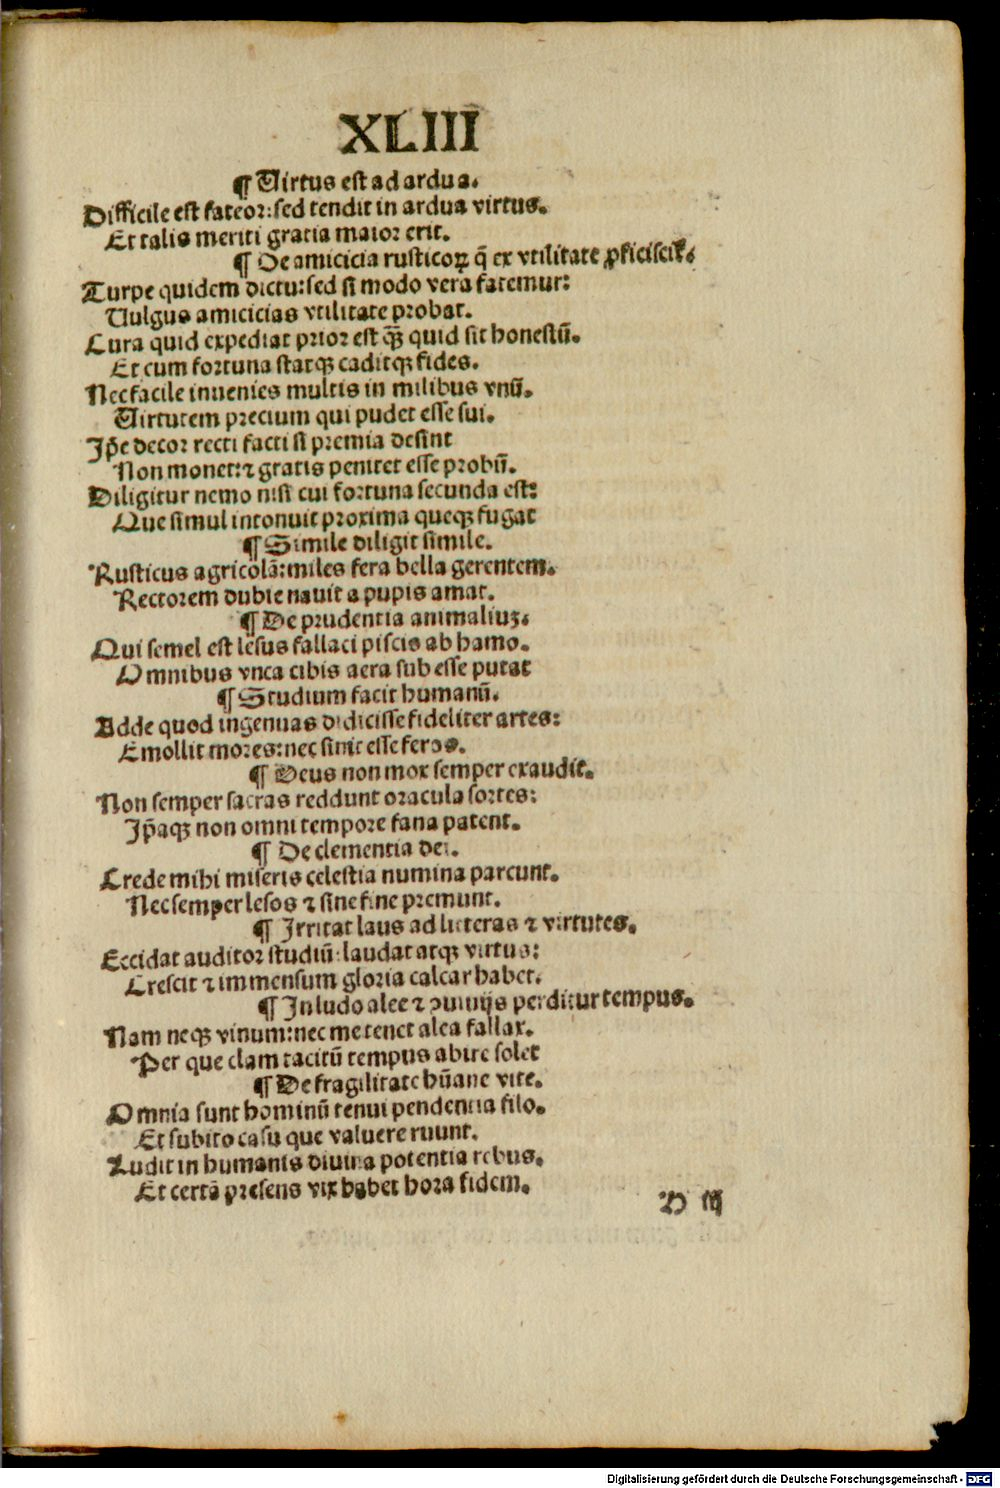 XLIII
¶ Uirtus est ad ardua.
Difficile est fateor: sed tendit in ardua virtus.
Et talis meriti gratia maior erit.
¶ De amicicia rusticoꝝ q̄ ex vtilitate ꝓficiscit᷑.
Turpe quidem dictu: sed si modo vera fatemur:
Uulgus amicicias vtilitate probat.
Cura quid expediat prior est qꝫ̄ quid sit honestū.
Et cum fortuna statqꝫ caditqꝫ fides.
Nec facile inuenies multis in milibus vnū.
Uirtutem precium qui pudet esse sui.
Ip̄e decor recti facti si premia desint
Non monet: ⁊ gratis penitet esse probū.
Diligitur nemo nisi cui fortuna secunda est:
Que simul intonuit proxima queqꝫ fugat
¶ Simile diligit simile.
Rusticus agricolā: miles fera bella gerentem.
Rectorem dubie nauit a pupis amat.
¶ De prudentia animaliuꝫ.
Qui semel est lesus fallaci piscis ab hamo.
Omnibus vnca cibis aera sub esse putat
¶ Studium facit humanū.
Adde quod ingenuas didicisse fideliter artes:
Emollit mores: nec sinit esse feros.
¶ Deus non mox semper exaudit.
Non semper sacras reddunt oracula sortes:
Ip̄aqꝫ non omni tempore fana patent.
¶ De clementia dei.
Crede mihi miseris celestia numina parcunt.
Nec semper lesos ⁊ sine fine premunt.
¶ Irritat laus ad litteras ⁊ virtutes.
Excidat auditor studiū: laudat atqꝫ virtus:
Crescit ⁊ immensum gloria calcar habet.
¶ In ludo alee ⁊ ꝯuiuijs perditur tempus.
Nam neqꝫ vinum: nec me tenet alea fallax.
Per que clam tacitū tempus abire solet
¶ De fragilitate hūane vite.
Omnia sunt hominū tenui pendentia filo.
Et subito casu que valuere ruunt.
Ludit in humanis diuina potentia rebus.
Et certā presens vix habet hora fidem.
D iij
Digitalisierung gefördert durch die Deutsche Forschungsgemeinschaft - DFG